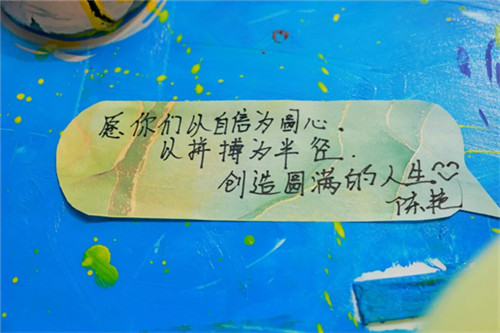 愿你们以自信为圆心.
以拼搏为半径.
创造圆满的人生
陈艳